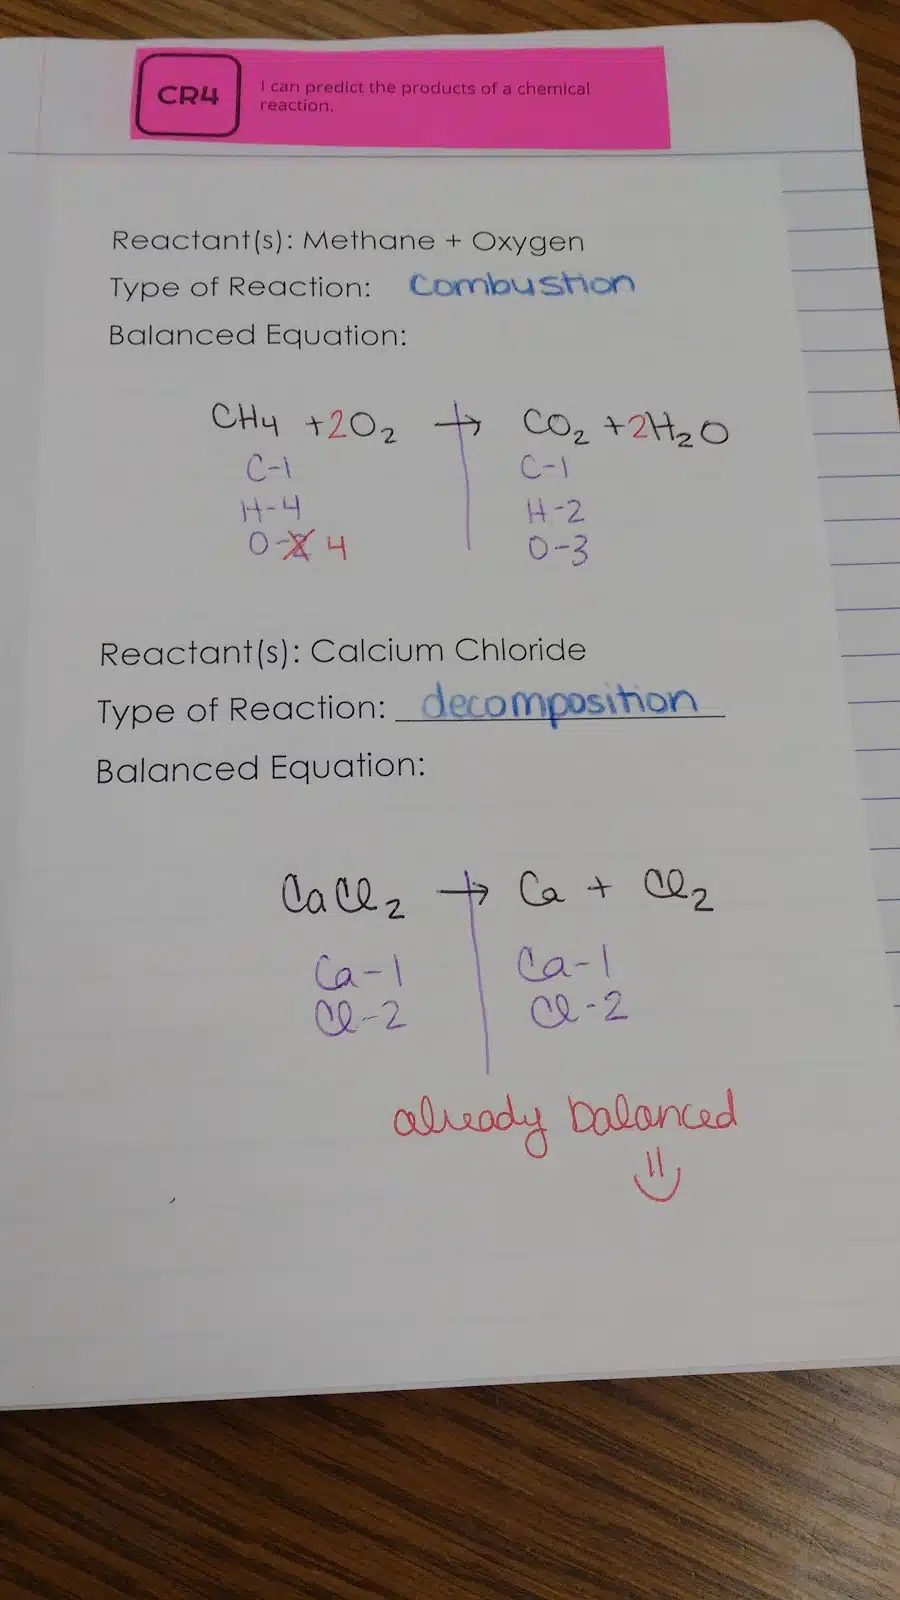 CR4
I can predict the products of a chemical
reaction.
Reactant(s): Methane + Oxygen
Type of Reaction: Combustion
Balanced Equation:
CH4 + 2O2 → CO2 + 2H2O
C-1 C-1
H-4 H-2
O-2 4 O-3
Reactant(s): Calcium Chloride
Type of Reaction: decomposition
Balanced Equation:
CaCl2 → Ca + Cl2
Ca-1 Ca-1
Cl-2 Cl-2
already balanced